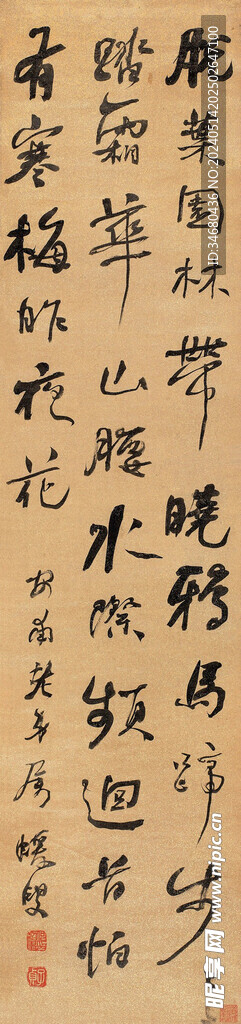 脱葉園林帶曉鴉馬蹄步
踏霜華山腰水際頻迴首怕
有寒梅昨夜花
屬蝯叟
ID:34680436 NO:20240514202502647100
昵享网 www.nipic.cn